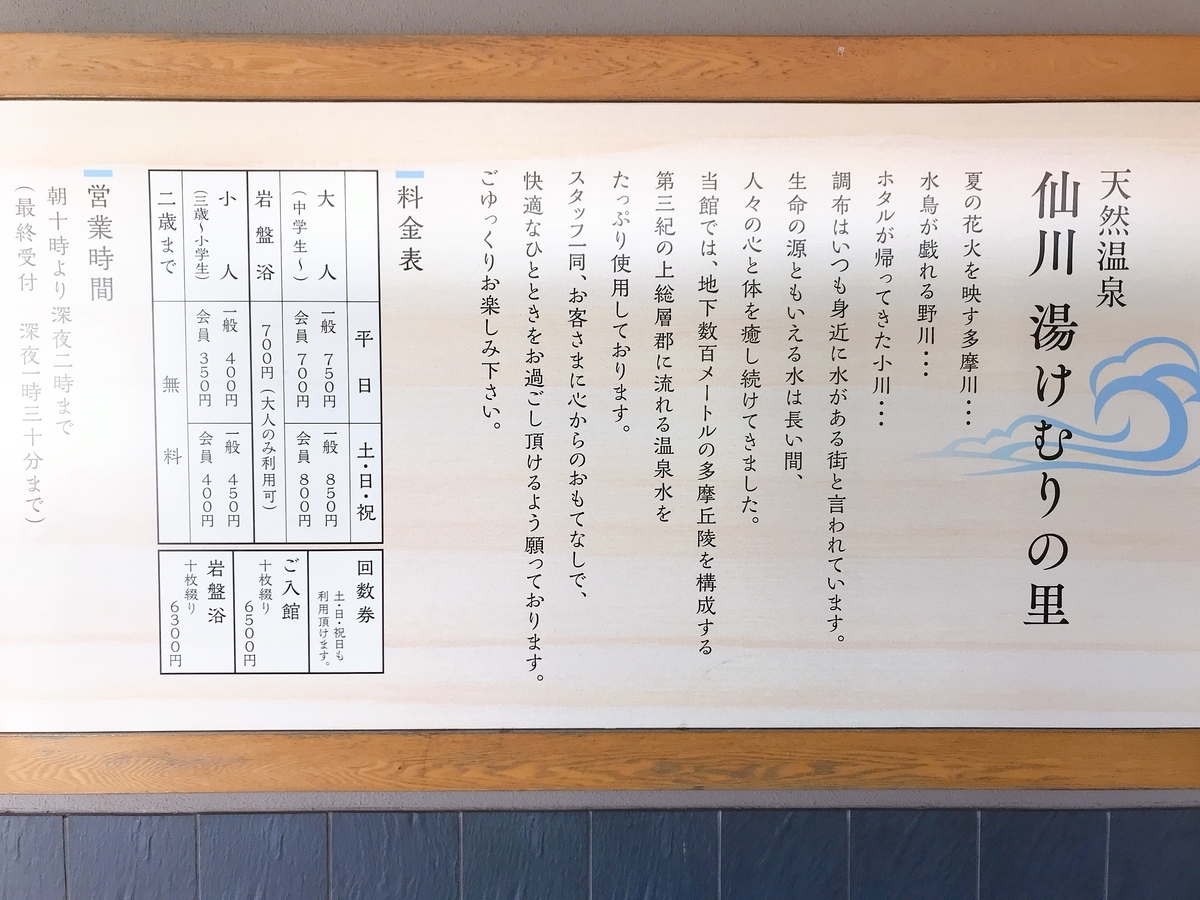 天然温泉
仙川 湯けむりの里
夏の花火を映す多摩川…
水鳥が戯れる野川…
ホタルが帰ってきた小川…
調布はいつも身近に水がある街と言われています。
生命の源ともいえる水は長い間、
人々の心と体を癒し続けてきました。
当館では、地下数百メートルの多摩丘陵を構成する
第三紀の上総層郡に流れる温泉水を
たっぷり使用しております。
スタッフ一同、お客さまに心からのおもてなしで、
快適なひとときをお過ごし頂けるよう願っております。
ごゆっくりお楽しみ下さい。
料金表
平日
土・日・祝
大人
(中学生~)
一般 750円
会員 700円
一般 850円
会員 800円
岩盤浴
700円(大人のみ利用可)
小人
(三歳~小学生)
一般 400円
会員 350円
一般 450円
会員 400円
二歳まで
無料
回数券
土・日・祝日も
利用頂けます。
ご入館
十枚綴り
6500円
岩盤浴
十枚綴り
6300円
営業時間
朝十時より深夜二時まで
(最終受付 深夜一時三十分まで)